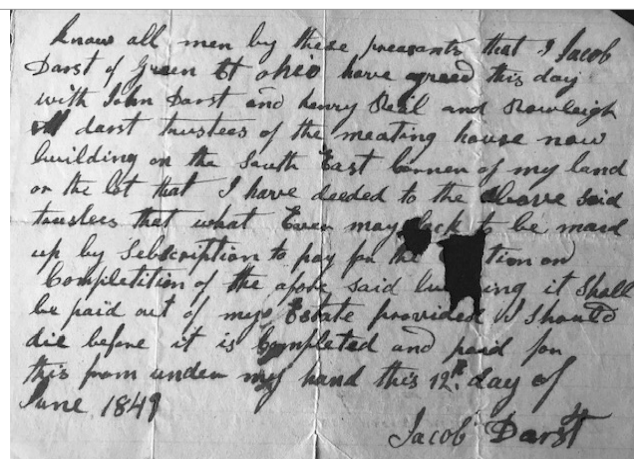 Know all men by these preasants that I Jacob
Darst of Green Ct Ohio have agreed this day
with John Darst and henry Deil and Rowleigh
darst trustees of the meating house now
building on the South East Cornen of my land
on the lot that I have deeded to the above said
trustees that what Ever may lack to be maid
up by Sebscription to pay for the tion and
Completition of the afore said ing it shall
be paid out of my Estate provided I should
die before it is Completed and paid for
this from under my hand this 12th day of
June 1849
Jacob Darst